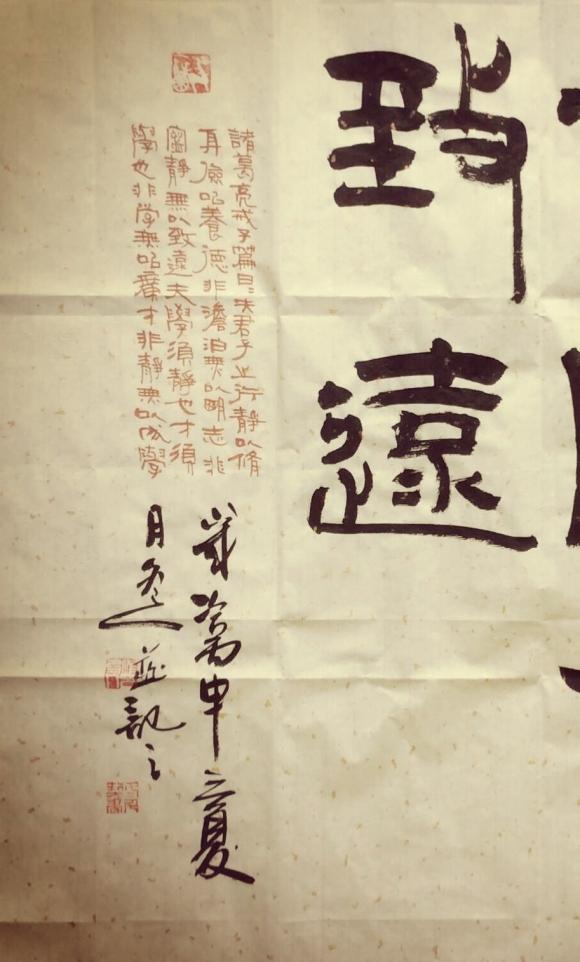 致遠
諸葛亮戒子篇曰夫君子之行靜以脩
身儉以養德非澹泊無以朙志非
寧靜無以致遠夫學須靜也才須
學也非学無以廣才非靜無以成學
歲次丙申之夏
並記之